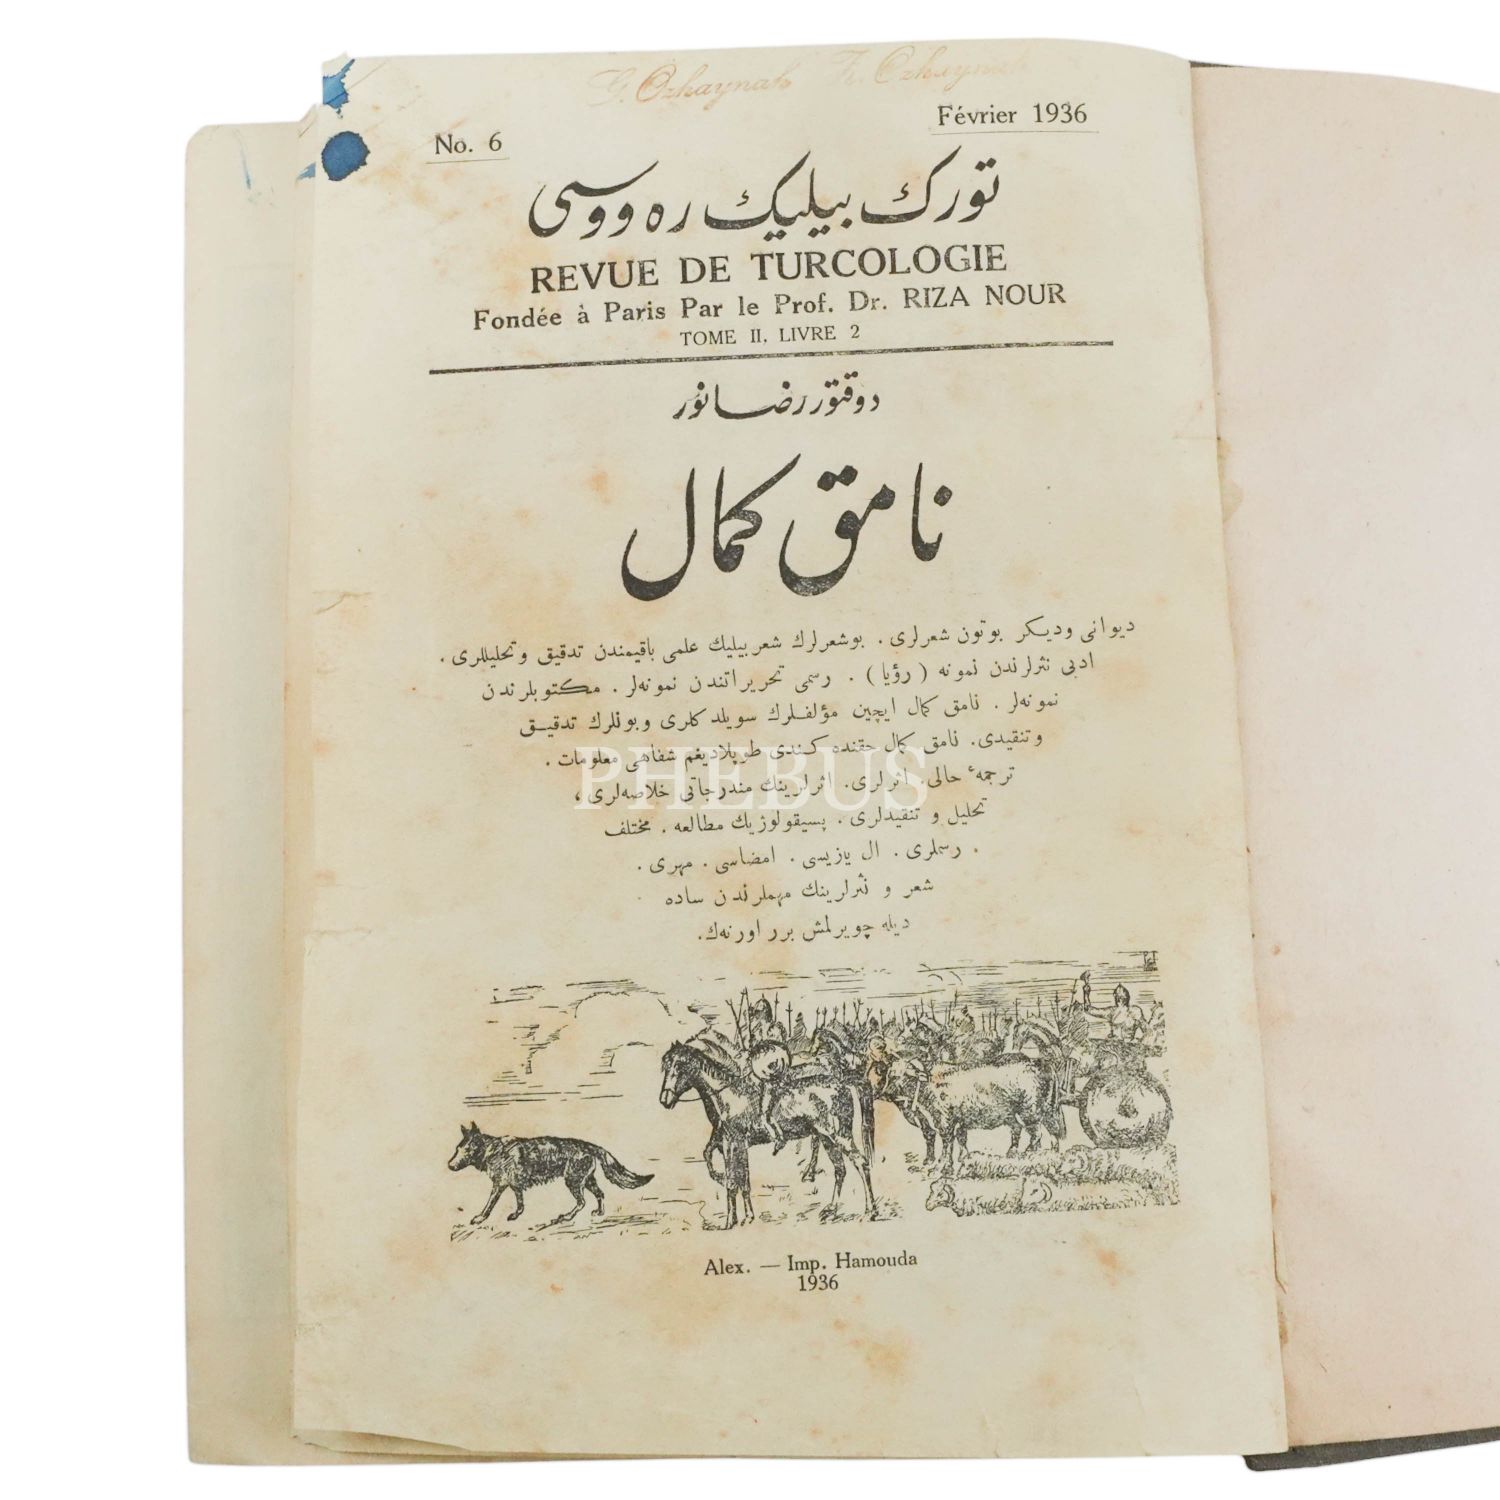 G. Ozkaynak
No. 6
Février 1936
تورك بيليك ره ووسى
REVUE DE TURCOLOGIE
Fondée à Paris Par le Prof. Dr. RIZA NOUR
TOME II, LIVRE 2
دوقتور رضا نور
نامق كمال
ديوانى وديكر بوتون شعرلرى . بوشعرلرك شعر بيليك علمى باقيمندن تدقيق وتحليللرى .
ادبى نثرلرندن نمونه ( رؤيا ) . رسمى تحريراتندن نمونه‌لر . مكتوبلرندن
نمونه‌لر . نامق كمال ايچين مؤلفلرك سويلدكلرى وبونلرك تدقيق
وتنقيدى. نامق كمال حقنده كندى طوپلاديغم شفاهى معلومات .
ترجمهٔ حالى. اثرلرى. اثرلرينك مندرجاتى خلاصه‌لرى ،
تحليل و تنقيدلرى . پسيقولوژيك مطالعه . مختلف
رسملرى . ال يازيسى . امضاسى . مهرى .
شعر و نثرلرينك مهملرندن ساده
ديله چويرلمش برر اورنه‌ك.
PHEBUS
Alex. — Imp. Hamouda
1936